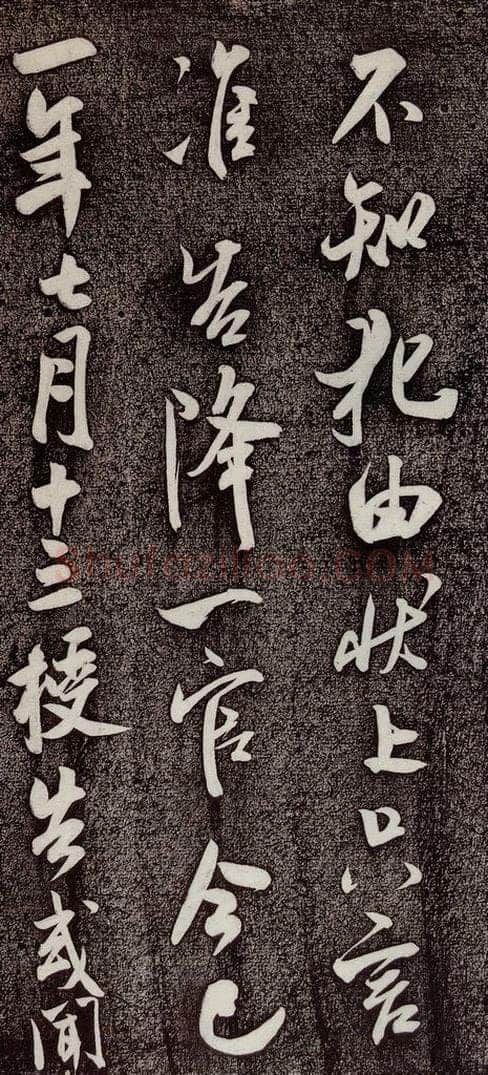 不知犯由状上只言
准告降一官今已
一年七月十三授告或闻
shufaziliao.COM